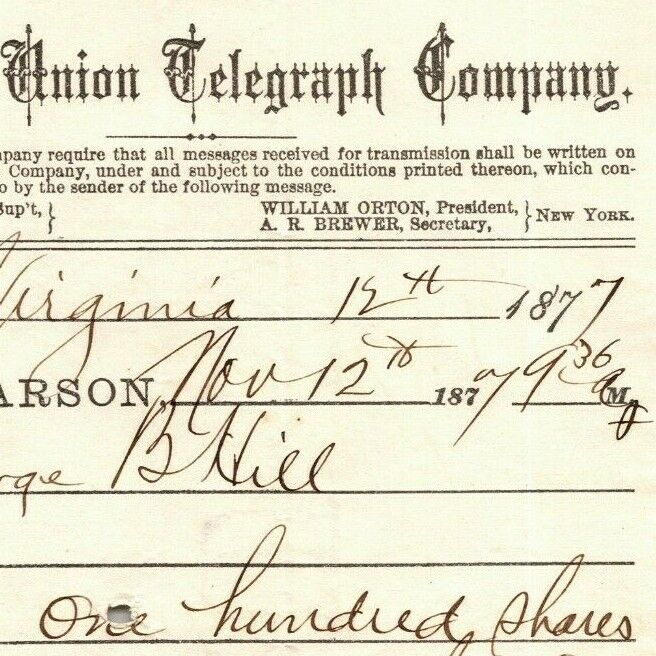 Union Telegraph Company.
mpany require that all messages received for transmission shall be written on
Company, under and subject to the conditions printed thereon, which con-
o by the sender of the following message.
Sup't, } WILLIAM ORTON, President, } NEW YORK.
A. R. BREWER, Secretary,
Virginia 12th 1877
ARSON, Nov 12th 1877 9 36 a M.
rge B Hill
One hundred shares